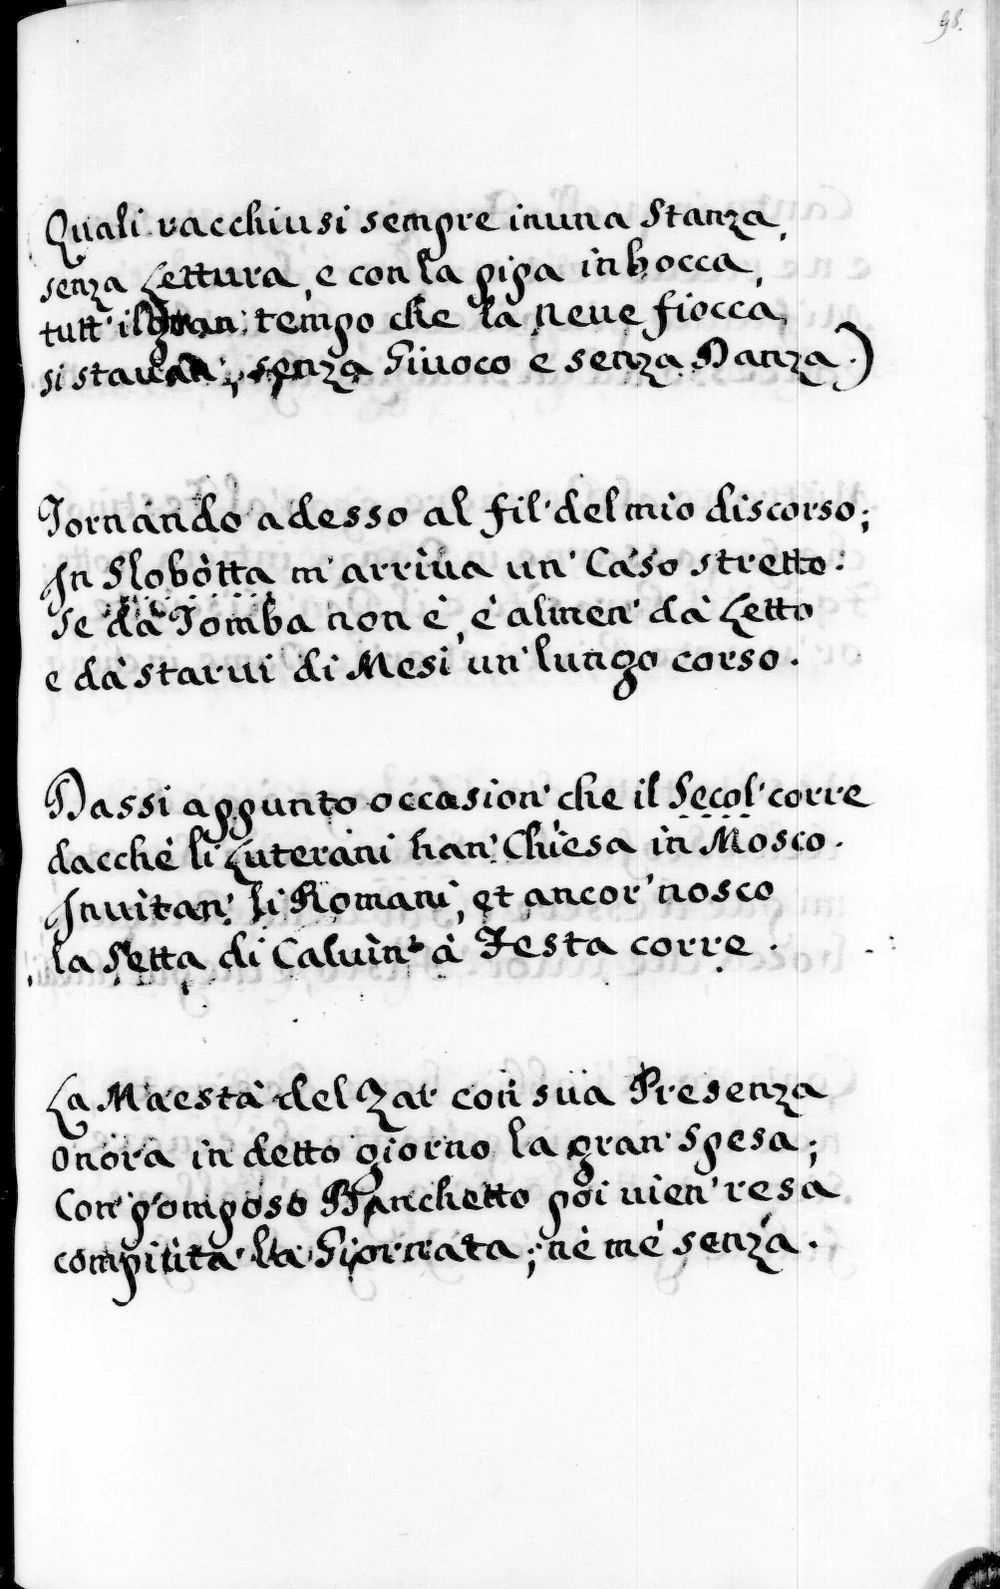 98.
Quali racchiusi sempre in una Stanza,
senza Lettura, e con la pipa in bocca,
tutt' il gran' tempo che la neve fiocca,
si stavan', senza Giuoco e senza Danza.)
Tornando adesso al fil' del mio discorso;
In Slobòtta m'arriva un' Caso stretto:
Se dà Tomba non è, è almen' dà Letto
e dà starvi di Mesi un' lungo corso.
Dassi appunto occasion' che il Secol' corre
dacche li Luterani han' Chiesa in Mosco.
Invitan' li Romani, et ancor' nosco
la Setta di Calvin' à Festa corre.
La Maestà del Zar con sua Presenza
Onora in detto giorno la gran' Spesa;
Con' pomposo Banchetto poi vien' resa
compiùta la Giornata; nè mè senza.